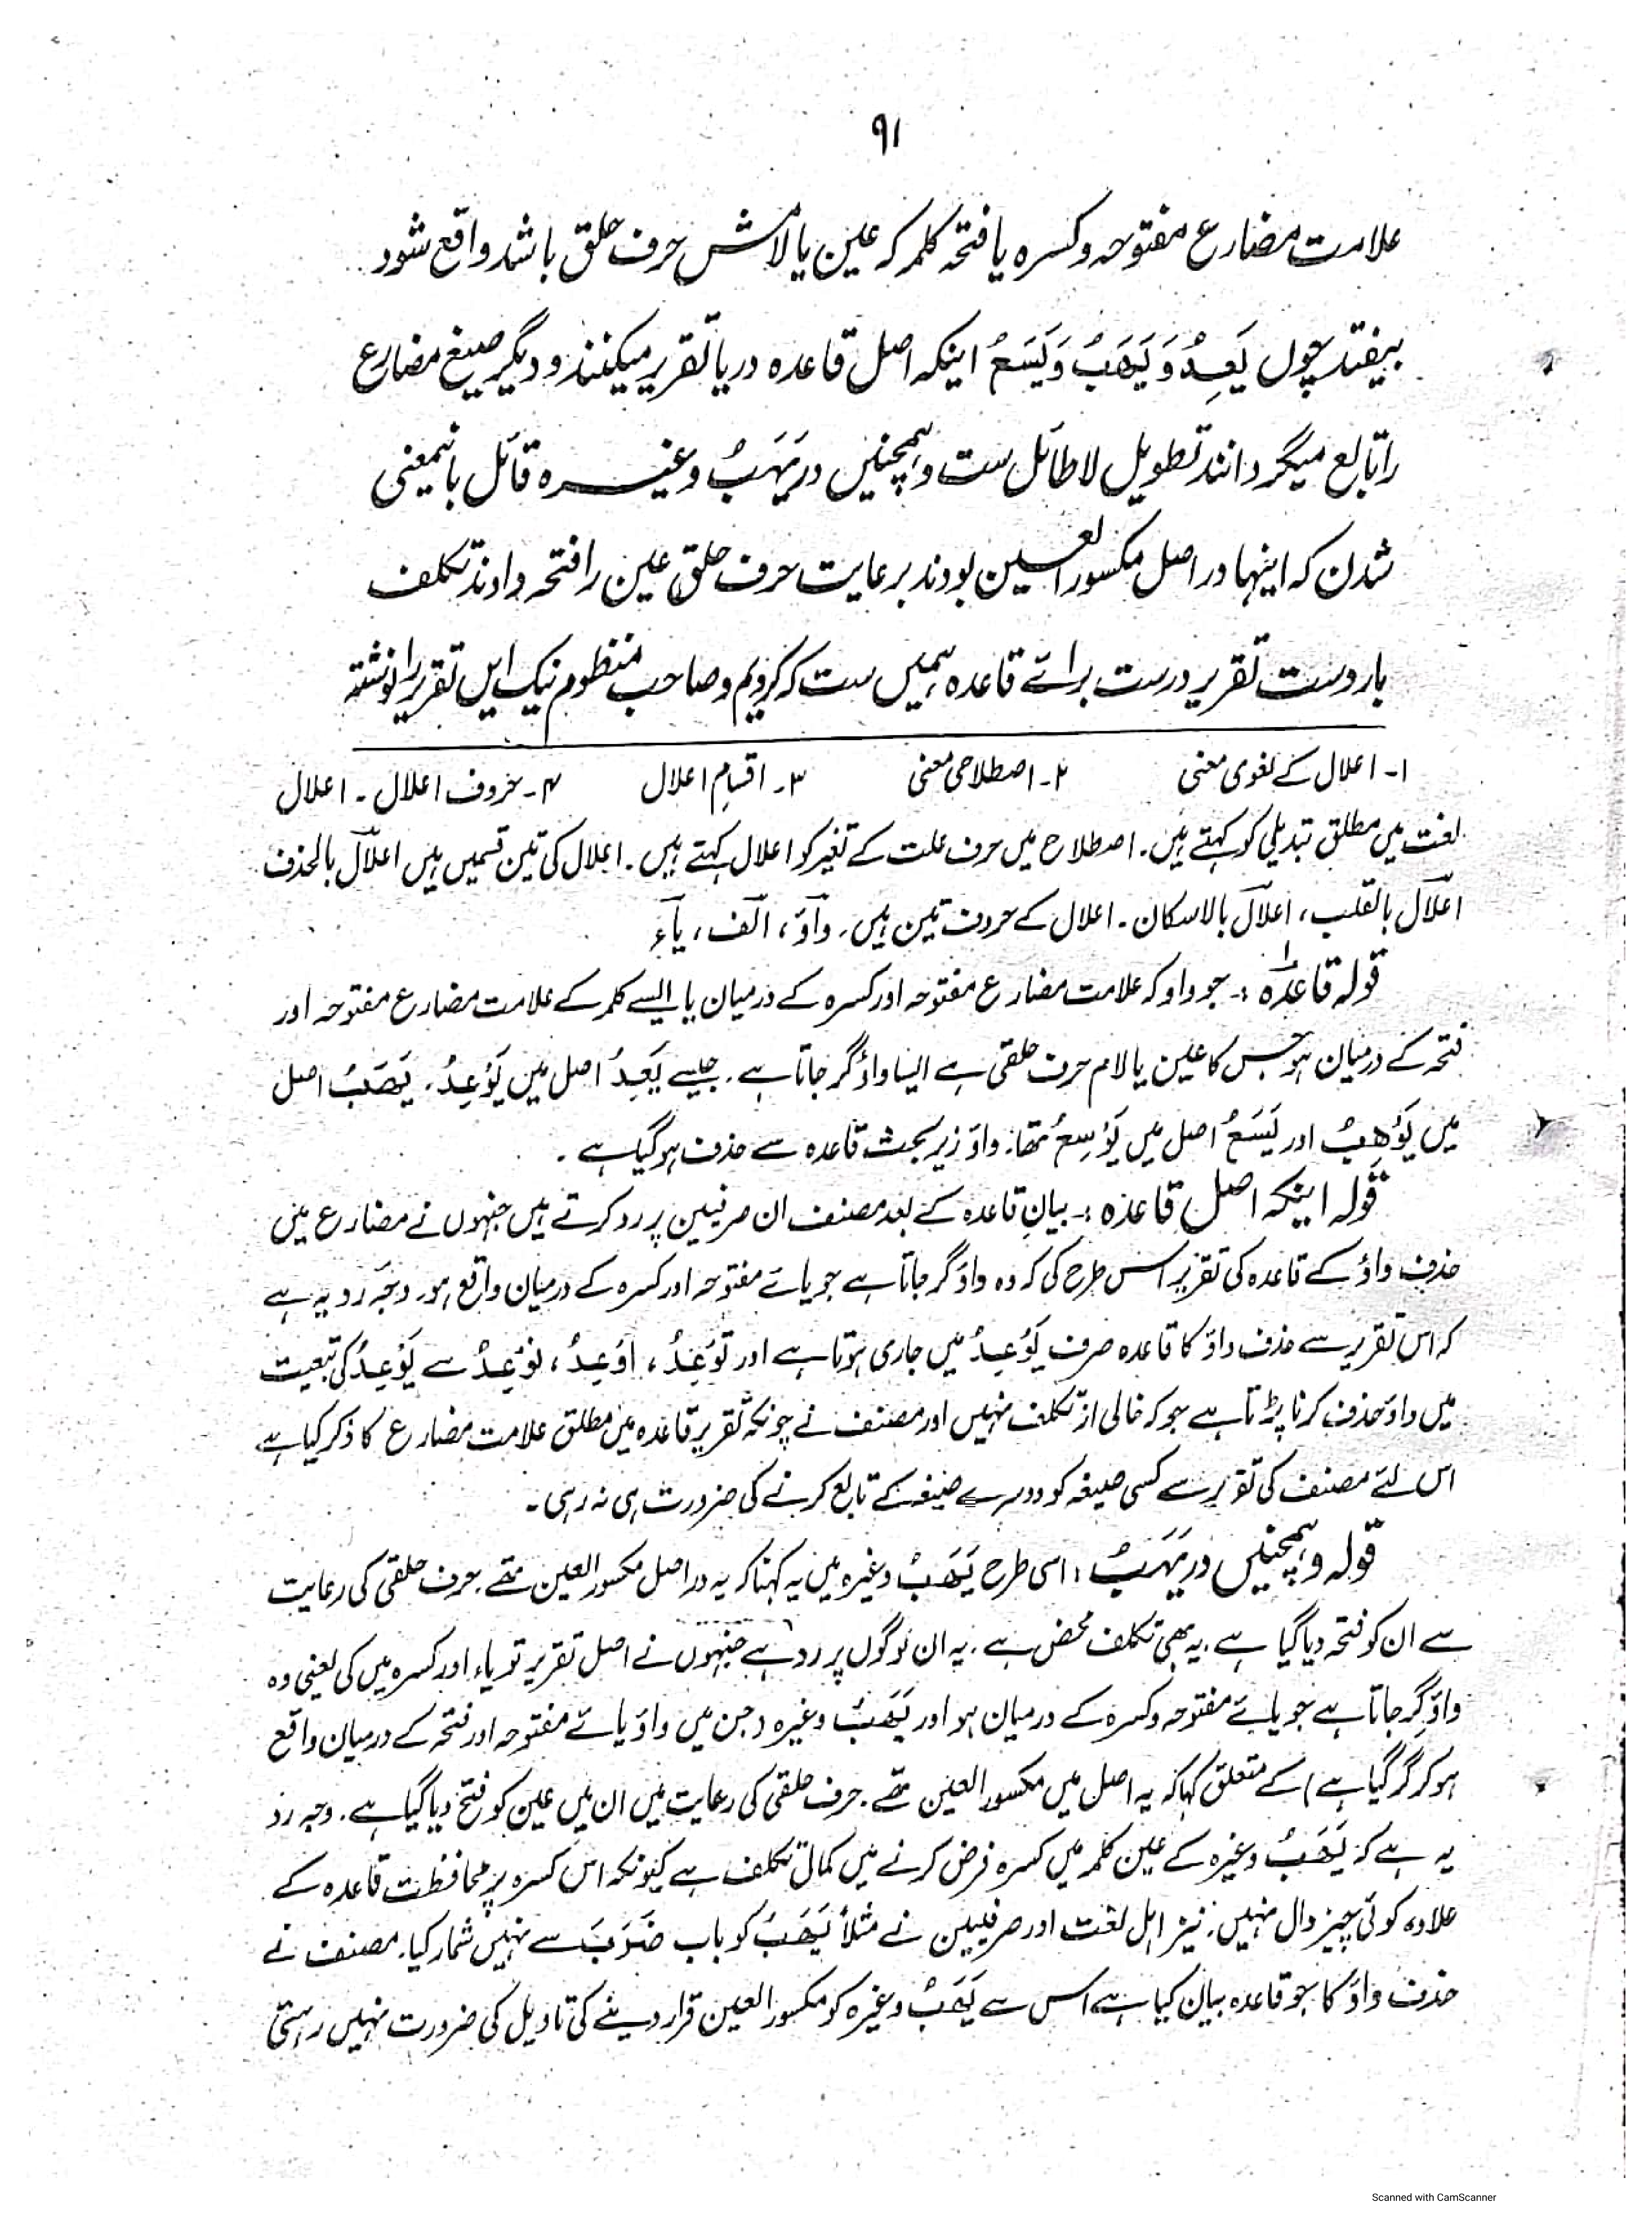 ۹۱
علامت مضارع مفتوحہ و کسرہ یا فتحہ کلمہ کہ عین یا لامش حرف حلق باشد واقع شود
بیفتد چوں یَعِدُ وَ یَھَبُ وَ یَسَعُ اینکہ اصل قاعدہ در یا تقریر میکنند و دیگر صیغ مضارع
را تابع میگردانند تطویل لا طائل ست و ہمچنیں در یَہَبُ وغیرہ قائل بانیمعنی
شدن کہ اینہا در اصل مکسور العین بودند برعایت حرف حلق عین را فتحہ دادند تکلف
باردست تقریر درست برائے قاعدہ ہمیں ست کہ کردیم و صاحب منظوم نیک ایں تقریر را نوشتہ
۱۔ اعلال کے لغوی معنی ۲۔ اصطلاحی معنی ۳۔ اقسامِ اعلال ۴۔ حروف اعلال ۔ اعلال
لغت میں مطلق تبدیلی کو کہتے ہیں۔ اصطلاح میں حرف علت کے تغیر کو اعلال کہتے ہیں۔ اعلال کی تین قسمیں ہیں اعلال بالحذف
اعلال بالقلب، اعلال بالاسکان۔ اعلال کے حروف تین ہیں۔ واؤ، الف، یاء
قولہ قاعدہ ۱ :۔ جو واو کہ علامت مضارع مفتوحہ اور کسرہ کے درمیان یا ایسے کلمہ کے علامت مضارع مفتوحہ اور
فتحہ کے درمیان ہو جس کا عین یا لام حرف حلقی ہے ایسا واؤ گر جاتا ہے۔ جیسے یَعِدُ اصل میں یَوْعِدُ۔ یَھَبُ اصل
میں یَوْھِبُ اور یَسَعُ اصل میں یَوْسِعُ تھا۔ واؤ زیر بحث قاعدہ سے حذف ہو گیا ہے ۔
قولہ اینکہ اصل قاعدہ :۔ بیانِ قاعدہ کے بعد مصنف ان صرفیین پر رد کرتے ہیں جنہوں نے مضارع میں
حذف واؤ کے قاعدہ کی تقریر اس طرح کی کہ وہ واؤ گر جاتا ہے جو یائے مفتوحہ اور کسرہ کے درمیان واقع ہو۔ وجہ رد یہ ہے
کہ اس تقریر سے حذف واؤ کا قاعدہ صرف یَوْعِدُ میں جاری ہوتا ہے اور تَوْعِدُ، اَوْعِدُ، نَوْعِدُ سے یَوْعِدُ کی تبعیت
میں واؤ حذف کرنا پڑتا ہے جو کہ خالی از تکلف نہیں اور مصنف نے چونکہ تقریر قاعدہ میں مطلق علامت مضارع کا ذکر کیا ہے
اس لئے مصنف کی تقریر سے کسی صیغہ کو دوسرے صیغہ کے تابع کرنے کی ضرورت ہی نہ رہی ۔
قولہ و ہمچنیں در یَہَبُ : اسی طرح یَھَبُ وغیرہ میں یہ کہنا کہ یہ دراصل مکسور العین تھے۔ حرف حلقی کی رعایت
سے ان کو فتحہ دیا گیا ہے۔ یہ بھی تکلف محض ہے۔ یہ ان لوگوں پر رد ہے جنہوں نے اصل تقریر تو یاء اور کسرہ میں کی یعنی وہ
واؤ گر جاتا ہے جو یائے مفتوحہ و کسرہ کے درمیان ہو اور یَھَبُ وغیرہ (جن میں واؤ یائے مفتوحہ اور فتحہ کے درمیان واقع
ہو کر گر گیا ہے) کے متعلق کہا کہ یہ اصل میں مکسور العین تھے۔ حرف حلقی کی رعایت میں ان میں عین کو فتح دیا گیا ہے۔ وجہ رد
یہ ہے کہ یَھَبُ وغیرہ کے عین کلمہ میں کسرہ فرض کرنے میں کمال تکلف ہے کیونکہ اس کسرہ پر محافظت قاعدہ کے
علاوہ کوئی چیز دال نہیں۔ نیز اہل لغت اور صرفیین نے مثلاً یَھَبُ کو باب ضَرَبَ سے نہیں شمار کیا۔ مصنف نے
حذف واؤ کا جو قاعدہ بیان کیا ہے اس سے یَھَبُ وغیرہ کو مکسور العین قرار دینے کی تاویل کی ضرورت نہیں رہتی
Scanned with CamScanner